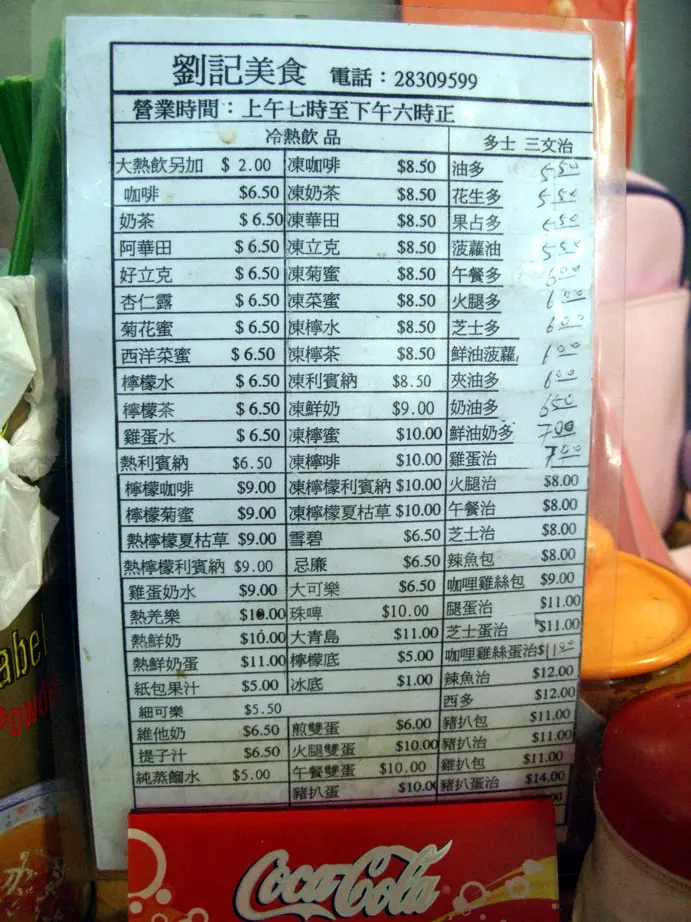 劉記美食 電話：28309599
營業時間：上午七時至下午六時正
冷熱飲品 多士 三文治
大熱飲另加 $ 2.00 凍咖啡 $8.50 油多 5.50
咖啡 $6.50 凍奶茶 $8.50 花生多 5.50
奶茶 $ 6.50 凍華田 $8.50 果占多 5.50
阿華田 $ 6.50 凍立克 $8.50 菠蘿油 5.50
好立克 $ 6.50 凍菊蜜 $8.50 午餐多 6.00
杏仁露 $ 6.50 凍菜蜜 $8.50 火腿多 6.00
菊花蜜 $ 6.50 凍檸水 $8.50 芝士多 6.00
西洋菜蜜 $ 6.50 凍檸茶 $8.50 鮮油菠蘿 6.00
檸檬水 $ 6.50 凍利賓納 $8.50 夾油多 6.00
檸檬茶 $ 6.50 凍鮮奶 $9.00 奶油多 650
雞蛋水 $ 6.50 凍檸蜜 $10.00 鮮油奶多 7.00
熱利賓納 $6.50 凍檸啡 $10.00 雞蛋治 7.00
檸檬咖啡 $9.00 凍檸檬利賓納 $10.00 火腿治 $8.00
檸檬菊蜜 $9.00 凍檸檬夏枯草 $10.00 午餐治 $8.00
熱檸檬夏枯草 $9.00 雪碧 $6.50 芝士治 $8.00
熱檸檬利賓納 $9.00 忌廉 $6.50 辣魚包 $8.00
雞蛋奶水 $9.00 大可樂 $6.50 咖哩雞絲包 $9.00
熱羌樂 $10.00 珠啤 $10.00 腿蛋治 $11.00
熱鮮奶 $10.00 大青島 $11.00 芝士蛋治 $11.00
熱鮮奶蛋 $11.00 檸檬底 $5.00 咖哩雞絲蛋治 $11.00
紙包果汁 $5.00 冰底 $1.00 辣魚治 $12.00
細可樂 $5.50 西多 $12.00
維他奶 $6.50 煎雙蛋 $6.00 豬扒包 $11.00
提子汁 $6.50 火腿雙蛋 $10.00 豬扒治 $11.00
純蒸餾水 $5.00 午餐雙蛋 $10.00 雞扒包 $11.00
豬扒蛋 $10.00 豬扒蛋治 $14.00
Coca-Cola